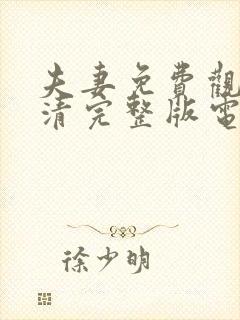 夫妻免費觀
清完整版電
徐少明